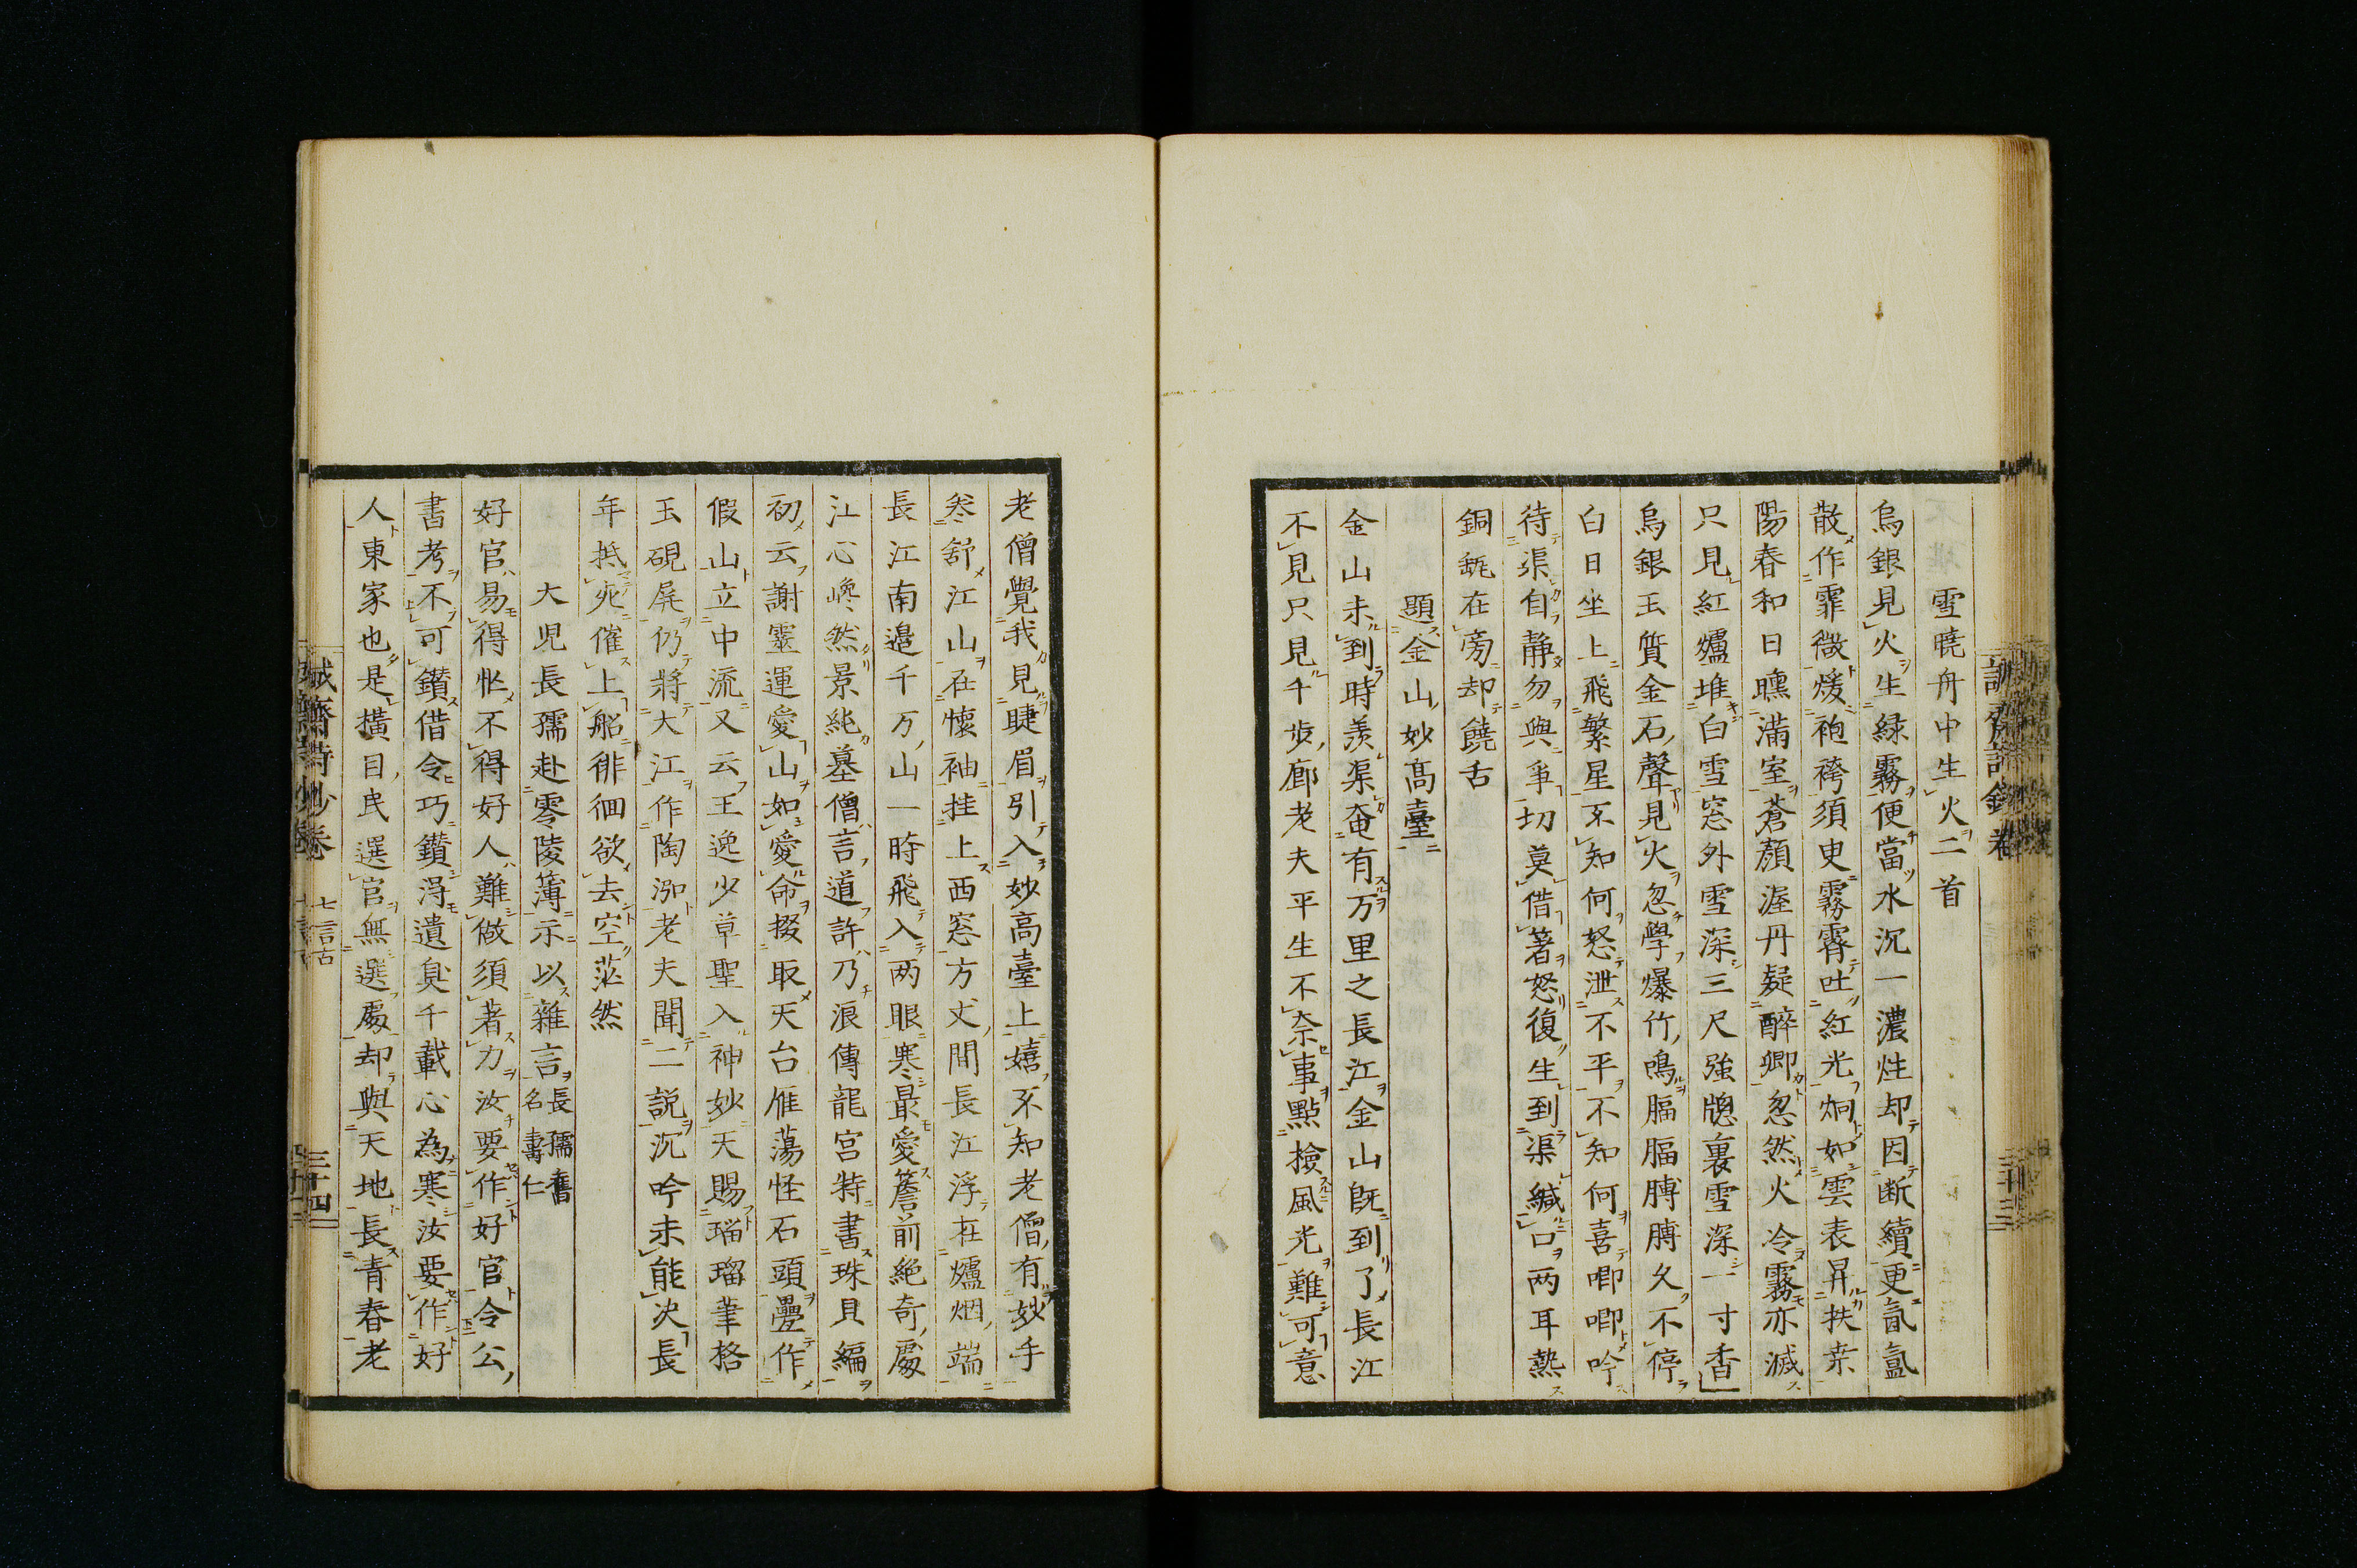 雪曉舟中生火二首
烏銀見火生緑霧便當水沉一濃炷却因断續更氤氲
散作霏微煖袍袴須臾霧霽吐紅光炯如雲表昇扶桒
陽春和日曛滿室蒼顏渥丹疑醉卿忽然火冷霧亦滅
只見紅爐堆白雪窓外雪深三尺強牕裏雪深一寸香
烏銀玉質金石聲見火忽學爆竹鳴腷腷膊膊久不停
白日坐上飛繁星不知何怒泄不平不知何喜唧唧吟
待渠自静勿與爭切莫借箸怒復生到渠緘口两耳熱
銅瓶在旁却饒舌
題金山妙髙臺
金山未到時羨渠奄有万里之長江金山既到了長江
不見只見千步廊老夫平生不奈事點撿風光難可意
老僧覺我見睫眉引入妙高臺上嬉不知老僧有妙手
卷舒江山在懷袖挂上西窓方丈間長江浮在爐烟端
長江南邉千万山一時飛入两眼寒最愛簷前絶奇處
江心巉然景純墓僧言道許乃浪傳龍宫特書珠貝編
初云謝靈運愛山如愛命掇取天台雁蕩怪石頭疊作
假山立中流又云王逸少草聖入神妙天賜瑙瑠筆格
玉硯屏仍將大江作陶泓老夫聞二説沉吟未能决長
年抵死催上船徘徊欲去空茫然
大児長孺赴零陵簿示以雜言長孺舊名壽仁
好官易得忙不得好人難做須著力汝要作好官令公
書考不可鑽借令巧鑽得遺臭千載心為寒汝要作好
人東家也是横目民選官無選處却與天地長青春老
誠齋詩鈔卷 七言古 三十四